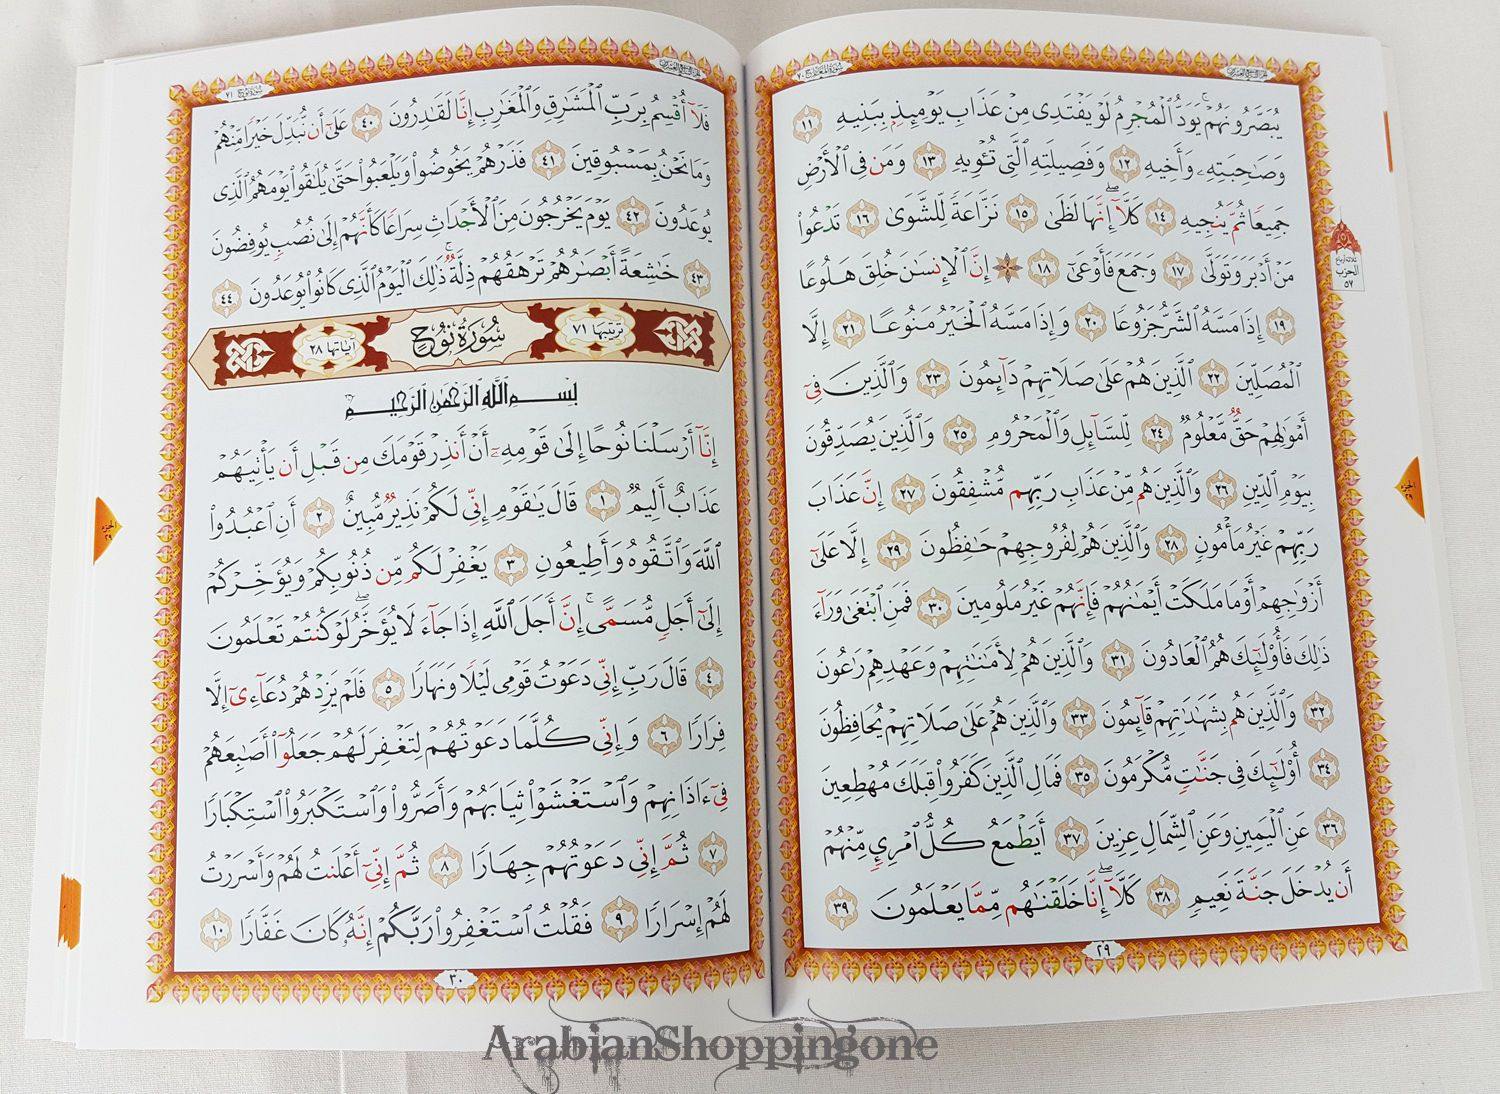 سُورَةُ المَعَارِج ٧٠
الجزء التاسع والعشرون
يُبَصَّرُونَهُمْ ۚ يَوَدُّ الْمُجْرِمُ لَوْ يَفْتَدِى مِنْ عَذَابِ يَوْمِئِذٍ بِبَنِيهِ ١١
وَصَاحِبَتِهِۦ وَأَخِيهِ ١٢ وَفَصِيلَتِهِ الَّتِى تُـْٔوِيهِ ١٣ وَمَن فِى الْأَرْضِ
جَمِيعًا ثُمَّ يُنجِيهِ ١٤ كَلَّآ ۖ إِنَّهَا لَظَىٰ ١٥ نَزَّاعَةً لِّلشَّوَىٰ ١٦ تَدْعُوا۟
مَنْ أَدْبَرَ وَتَوَلَّىٰ ١٧ وَجَمَعَ فَأَوْعَىٰٓ ١٨ إِنَّ الْإِنسَٰنَ خُلِقَ هَلُوعًا
١٩ إِذَا مَسَّهُ الشَّرُّ جَزُوعًا ٢٠ وَإِذَا مَسَّهُ الْخَيْرُ مَنُوعًا ٢١ إِلَّا
الْمُصَلِّينَ ٢٢ الَّذِينَ هُمْ عَلَىٰ صَلَاتِهِمْ دَآئِمُونَ ٢٣ وَالَّذِينَ فِىٓ
أَمْوَٰلِهِمْ حَقٌّ مَّعْلُومٌ ٢٤ لِّلسَّآئِلِ وَالْمَحْرُومِ ٢٥ وَالَّذِينَ يُصَدِّقُونَ
بِيَوْمِ الدِّينِ ٢٦ وَالَّذِينَ هُم مِّنْ عَذَابِ رَبِّهِم مُّشْفِقُونَ ٢٧ إِنَّ عَذَابَ
رَبِّهِمْ غَيْرُ مَأْمُونٍ ٢٨ وَالَّذِينَ هُمْ لِفُرُوجِهِمْ حَٰفِظُونَ ٢٩ إِلَّا عَلَىٰٓ
أَزْوَٰجِهِمْ أَوْ مَا مَلَكَتْ أَيْمَٰنُهُمْ فَإِنَّهُمْ غَيْرُ مَلُومِينَ ٣٠ فَمَنِ ابْتَغَىٰ وَرَآءَ
ذَٰلِكَ فَأُو۟لَٰٓئِكَ هُمُ الْعَادُونَ ٣١ وَالَّذِينَ هُمْ لِأَمَٰنَٰتِهِمْ وَعَهْدِهِمْ رَٰعُونَ
٣٢ وَالَّذِينَ هُم بِشَهَٰدَٰتِهِمْ قَآئِمُونَ ٣٣ وَالَّذِينَ هُمْ عَلَىٰ صَلَاتِهِمْ يُحَافِظُونَ
٣٤ أُو۟لَٰٓئِكَ فِى جَنَّٰتٍ مُّكْرَمُونَ ٣٥ فَمَالِ الَّذِينَ كَفَرُوا۟ قِبَلَكَ مُهْطِعِينَ
٣٦ عَنِ الْيَمِينِ وَعَنِ الشِّمَالِ عِزِينَ ٣٧ أَيَطْمَعُ كُلُّ امْرِئٍ مِّنْهُمْ
أَن يُدْخَلَ جَنَّةَ نَعِيمٍ ٣٨ كَلَّآ ۖ إِنَّا خَلَقْنَٰهُم مِّمَّا يَعْلَمُونَ ٣٩
٢٩
ثلاثة أرباع
الحزب
٥٧
الجزء ٢٩
سُورَةُ نُوحٍ ٧١
الجزء التاسع والعشرون
فَلَآ أُقْسِمُ بِرَبِّ الْمَشَٰرِقِ وَالْمَغَٰرِبِ إِنَّا لَقَٰدِرُونَ ٤٠ عَلَىٰٓ أَن نُّبَدِّلَ خَيْرًا مِّنْهُمْ
وَمَا نَحْنُ بِمَسْبُوقِينَ ٤١ فَذَرْهُمْ يَخُوضُوا۟ وَيَلْعَبُوا۟ حَتَّىٰ يُلَٰقُوا۟ يَوْمَهُمُ الَّذِى
يُوعَدُونَ ٤٢ يَوْمَ يَخْرُجُونَ مِنَ الْأَجْدَاثِ سِرَاعًا كَأَنَّهُمْ إِلَىٰ نُصُبٍ يُوفِضُونَ
٤٣ خَٰشِعَةً أَبْصَٰرُهُمْ تَرْهَقُهُمْ ذِلَّةٌ ۚ ذَٰلِكَ الْيَوْمُ الَّذِى كَانُوا۟ يُوعَدُونَ ٤٤
ترتيبها ٧١ سُورَةُ نُوحٍ آياتها ٢٨
بِسْمِ اللَّهِ الرَّحْمَٰنِ الرَّحِيمِ
إِنَّآ أَرْسَلْنَا نُوحًا إِلَىٰ قَوْمِهِۦٓ أَنْ أَنذِرْ قَوْمَكَ مِن قَبْلِ أَن يَأْتِيَهُمْ
عَذَابٌ أَلِيمٌ ١ قَالَ يَٰقَوْمِ إِنِّى لَكُمْ نَذِيرٌ مُّبِينٌ ٢ أَنِ اعْبُدُوا۟
اللَّهَ وَاتَّقُوهُ وَأَطِيعُونِ ٣ يَغْفِرْ لَكُم مِّن ذُنُوبِكُمْ وَيُؤَخِّرْكُمْ
إِلَىٰٓ أَجَلٍ مُّسَمًّى ۚ إِنَّ أَجَلَ اللَّهِ إِذَا جَآءَ لَا يُؤَخَّرُ ۖ لَوْ كُنتُمْ تَعْلَمُونَ
٤ قَالَ رَبِّ إِنِّى دَعَوْتُ قَوْمِى لَيْلًا وَنَهَارًا ٥ فَلَمْ يَزِدْهُمْ دُعَآءِىٓ إِلَّا
فِرَارًا ٦ وَإِنِّى كُلَّمَا دَعَوْتُهُمْ لِتَغْفِرَ لَهُمْ جَعَلُوٓا۟ أَصَٰبِعَهُمْ
فِىٓ ءَاذَانِهِمْ وَاسْتَغْشَوْا۟ ثِيَابَهُمْ وَأَصَرُّوا۟ وَاسْتَكْبَرُوا۟ اسْتِكْبَارًا
٧ ثُمَّ إِنِّى دَعَوْتُهُمْ جِهَارًا ٨ ثُمَّ إِنِّىٓ أَعْلَنتُ لَهُمْ وَأَسْرَرْتُ
لَهُمْ إِسْرَارًا ٩ فَقُلْتُ اسْتَغْفِرُوا۟ رَبَّكُمْ إِنَّهُۥ كَانَ غَفَّارًا ١٠
٣٠
الجزء ٢٩
ArabianShoppingone